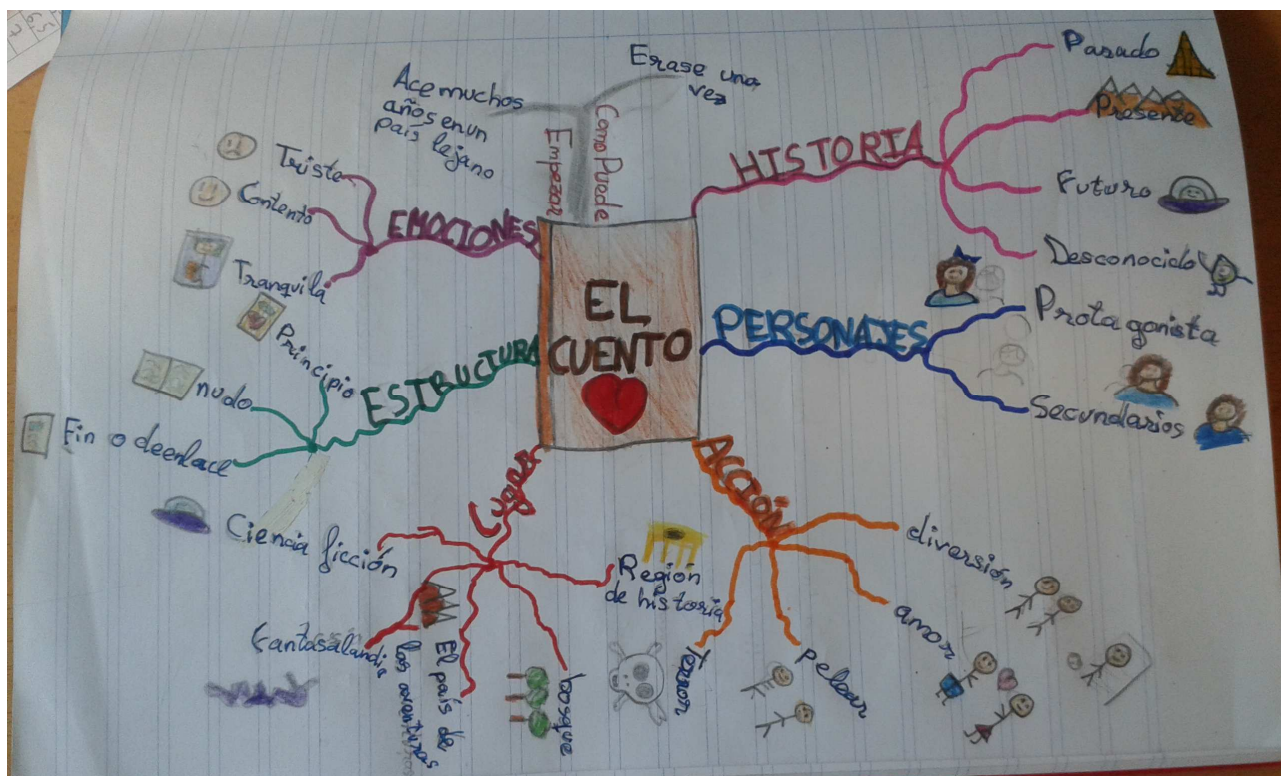 Erase una
vez
Ace muchos
años en un
país lejano
Como Puede
Empezar
EL
CUENTO
HISTORIA
Pasado
Presente
Futuro
Desconocido
PERSONAJES
Protagonista
Secundarios
ACCIÓN
diversión
amor
pelear
Terror
Lugar
Región
de historia
bosque
El país de
las aventuras
Fantasalandia
Ciencia ficción
ESTRUCTURA
Principio
nudo
Fin o deenlace
EMOCIONES
Triste
Contento
Tranquila